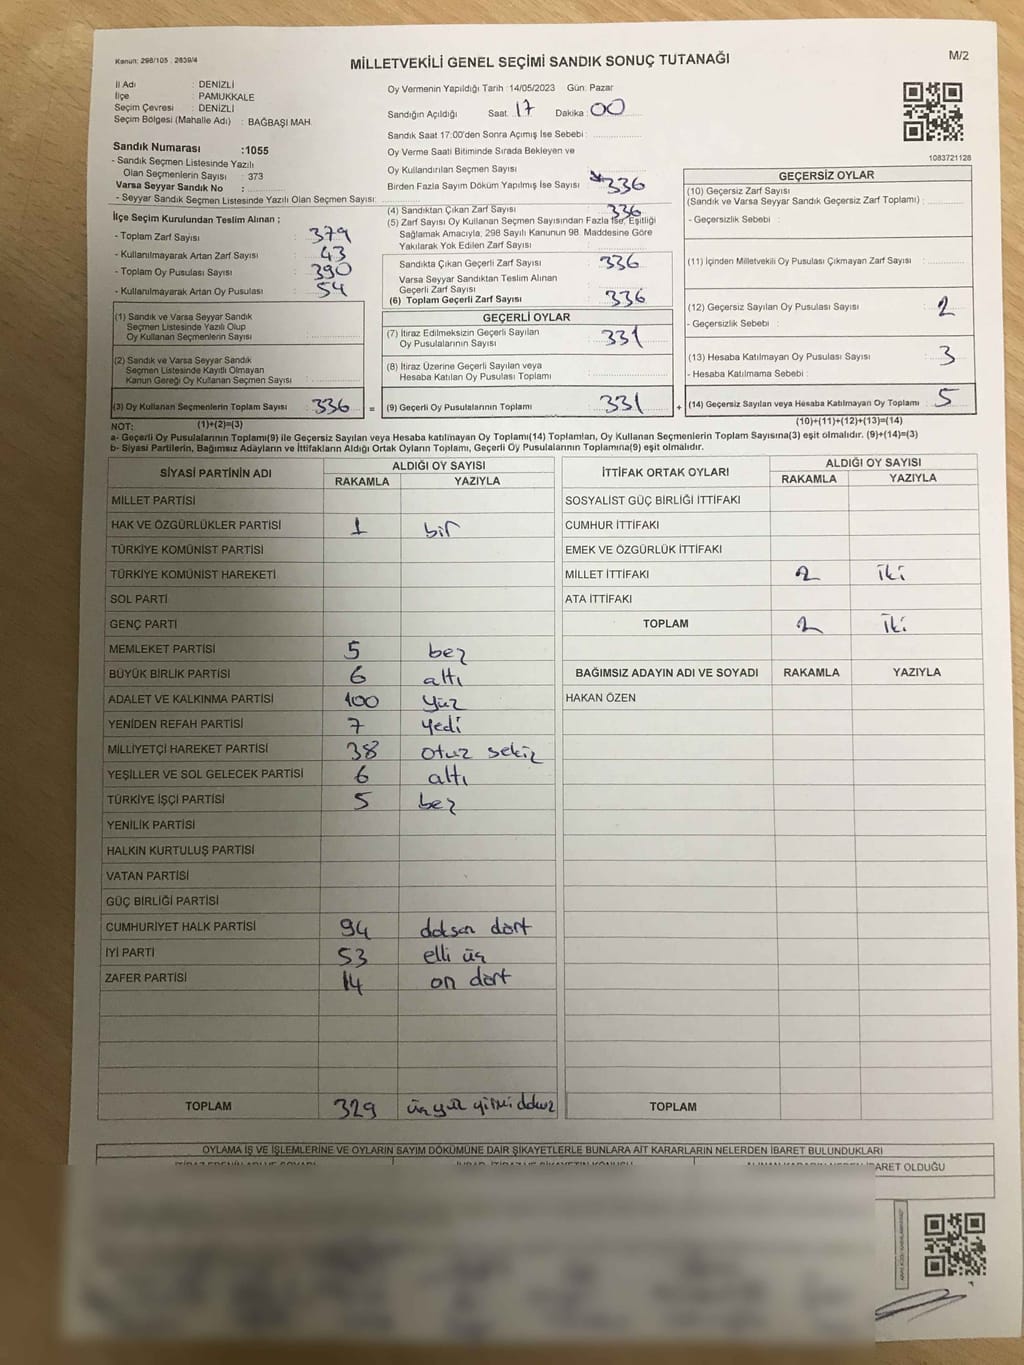 Kanun: 298/105 . 2839/4
MİLLETVEKİLİ GENEL SEÇİMİ SANDIK SONUÇ TUTANAĞI
M/2
İl Adı : DENİZLİ
İlçe : PAMUKKALE
Seçim Çevresi : DENİZLİ
Seçim Bölgesi (Mahalle Adı) : BAĞBAŞI MAH.
Sandık Numarası :1055
- Sandık Seçmen Listesinde Yazılı
Olan Seçmenlerin Sayısı : 373
Varsa Seyyar Sandık No :
- Seyyar Sandık Seçmen Listesinde Yazılı Olan Seçmen Sayısı:
Oy Vermenin Yapıldığı Tarih :14/05/2023 Gün: Pazar
Sandığın Açıldığı Saat: 17 Dakika: 00
Sandık Saat 17:00'den Sonra Açımış İse Sebebi :
Oy Verme Saati Bitiminde Sırada Bekleyen ve
Oy Kullandırılan Seçmen Sayısı
Birden Fazla Sayım Döküm Yapılmış İse Sayısı 336
1083721128
İlçe Seçim Kurulundan Teslim Alınan ;
- Toplam Zarf Sayısı : 379
- Kullanılmayarak Artan Zarf Sayısı : 43
- Toplam Oy Pusulası Sayısı : 390
- Kullanılmayarak Artan Oy Pusulası : 54
(1) Sandık ve Varsa Seyyar Sandık
Seçmen Listesinde Yazılı Olup
Oy Kullanan Seçmenlerin Sayısı :
(2) Sandık ve Varsa Seyyar Sandık
Seçmen Listesinde Kayıtlı Olmayan
Kanun Gereği Oy Kullanan Seçmen Sayısı :
(3) Oy Kullanan Seçmenlerin Toplam Sayısı : 336 =
(1)+(2)=(3)
(4) Sandıktan Çıkan Zarf Sayısı : 336
(5) Zarf Sayısı Oy Kullanan Seçmen Sayısından Fazla İse, Eşitliği
Sağlamak Amacıyla, 298 Sayılı Kanunun 98. Maddesine Göre
Yakılarak Yok Edilen Zarf Sayısı :
Sandıkta Çıkan Geçerli Zarf Sayısı : 336
Varsa Seyyar Sandıktan Teslim Alınan
Geçerli Zarf Sayısı :
(6) Toplam Geçerli Zarf Sayısı : 336
GEÇERLİ OYLAR
(7) İtiraz Edilmeksizin Geçerli Sayılan
Oy Pusulalarının Sayısı : 331
(8) İtiraz Üzerine Geçerli Sayılan veya
Hesaba Katılan Oy Pusulası Toplamı :
(9) Geçerli Oy Pusulalarının Toplamı : 331 +
GEÇERSİZ OYLAR
(10) Geçersiz Zarf Sayısı
(Sandık ve Varsa Seyyar Sandık Geçersiz Zarf Toplamı) :
- Geçersizlik Sebebi :
(11) İçinden Milletvekili Oy Pusulası Çıkmayan Zarf Sayısı :
(12) Geçersiz Sayılan Oy Pusulası Sayısı : 2
- Geçersizlik Sebebi :
(13) Hesaba Katılmayan Oy Pusulası Sayısı : 3
- Hesaba Katılmama Sebebi :
(14) Geçersiz Sayılan veya Hesaba Katılmayan Oy Toplamı : 5
(10)+(11)+(12)+(13)=(14)
NOT:
a- Geçerli Oy Pusulalarının Toplamı(9) ile Geçersiz Sayılan veya Hesaba katılmayan Oy Toplamı(14) Toplamları, Oy Kullanan Seçmenlerin Toplam Sayısına(3) eşit olmalıdır. (9)+(14)=(3)
b- Siyasi Partilerin, Bağımsız Adayların ve İttifakların Aldığı Ortak Oyların Toplamı, Geçerli Oy Pusulalarının Toplamına(9) eşit olmalıdır.
SİYASİ PARTİNİN ADI ALDIĞI OY SAYISI
RAKAMLA YAZIYLA
MİLLET PARTİSİ
HAK VE ÖZGÜRLÜKLER PARTİSİ 1 bir
TÜRKİYE KOMÜNİST PARTİSİ
TÜRKİYE KOMÜNİST HAREKETİ
SOL PARTİ
GENÇ PARTİ
MEMLEKET PARTİSİ 5 beş
BÜYÜK BİRLİK PARTİSİ 6 altı
ADALET VE KALKINMA PARTİSİ 100 yüz
YENİDEN REFAH PARTİSİ 7 yedi
MİLLİYETÇİ HAREKET PARTİSİ 38 otuz sekiz
YEŞİLLER VE SOL GELECEK PARTİSİ 6 altı
TÜRKİYE İŞÇİ PARTİSİ 5 beş
YENİLİK PARTİSİ
HALKIN KURTULUŞ PARTİSİ
VATAN PARTİSİ
GÜÇ BİRLİĞİ PARTİSİ
CUMHURİYET HALK PARTİSİ 94 doksan dört
İYİ PARTİ 53 elli üç
ZAFER PARTİSİ 14 on dört
TOPLAM 329 üç yüz yirmi dokuz
İTTİFAK ORTAK OYLARI ALDIĞI OY SAYISI
RAKAMLA YAZIYLA
SOSYALİST GÜÇ BİRLİĞİ İTTİFAKI
CUMHUR İTTİFAKI
EMEK VE ÖZGÜRLÜK İTTİFAKI
MİLLET İTTİFAKI 2 iki
ATA İTTİFAKI
TOPLAM 2 iki
BAĞIMSIZ ADAYIN ADI VE SOYADI RAKAMLA YAZIYLA
HAKAN ÖZEN
TOPLAM
OYLAMA İŞ VE İŞLEMLERİNE VE OYLARIN SAYIM DÖKÜMÜNE DAİR ŞİKAYETLERLE BUNLARA AİT KARARLARIN NELERDEN İBARET BULUNDUKLARI
OLDUĞU